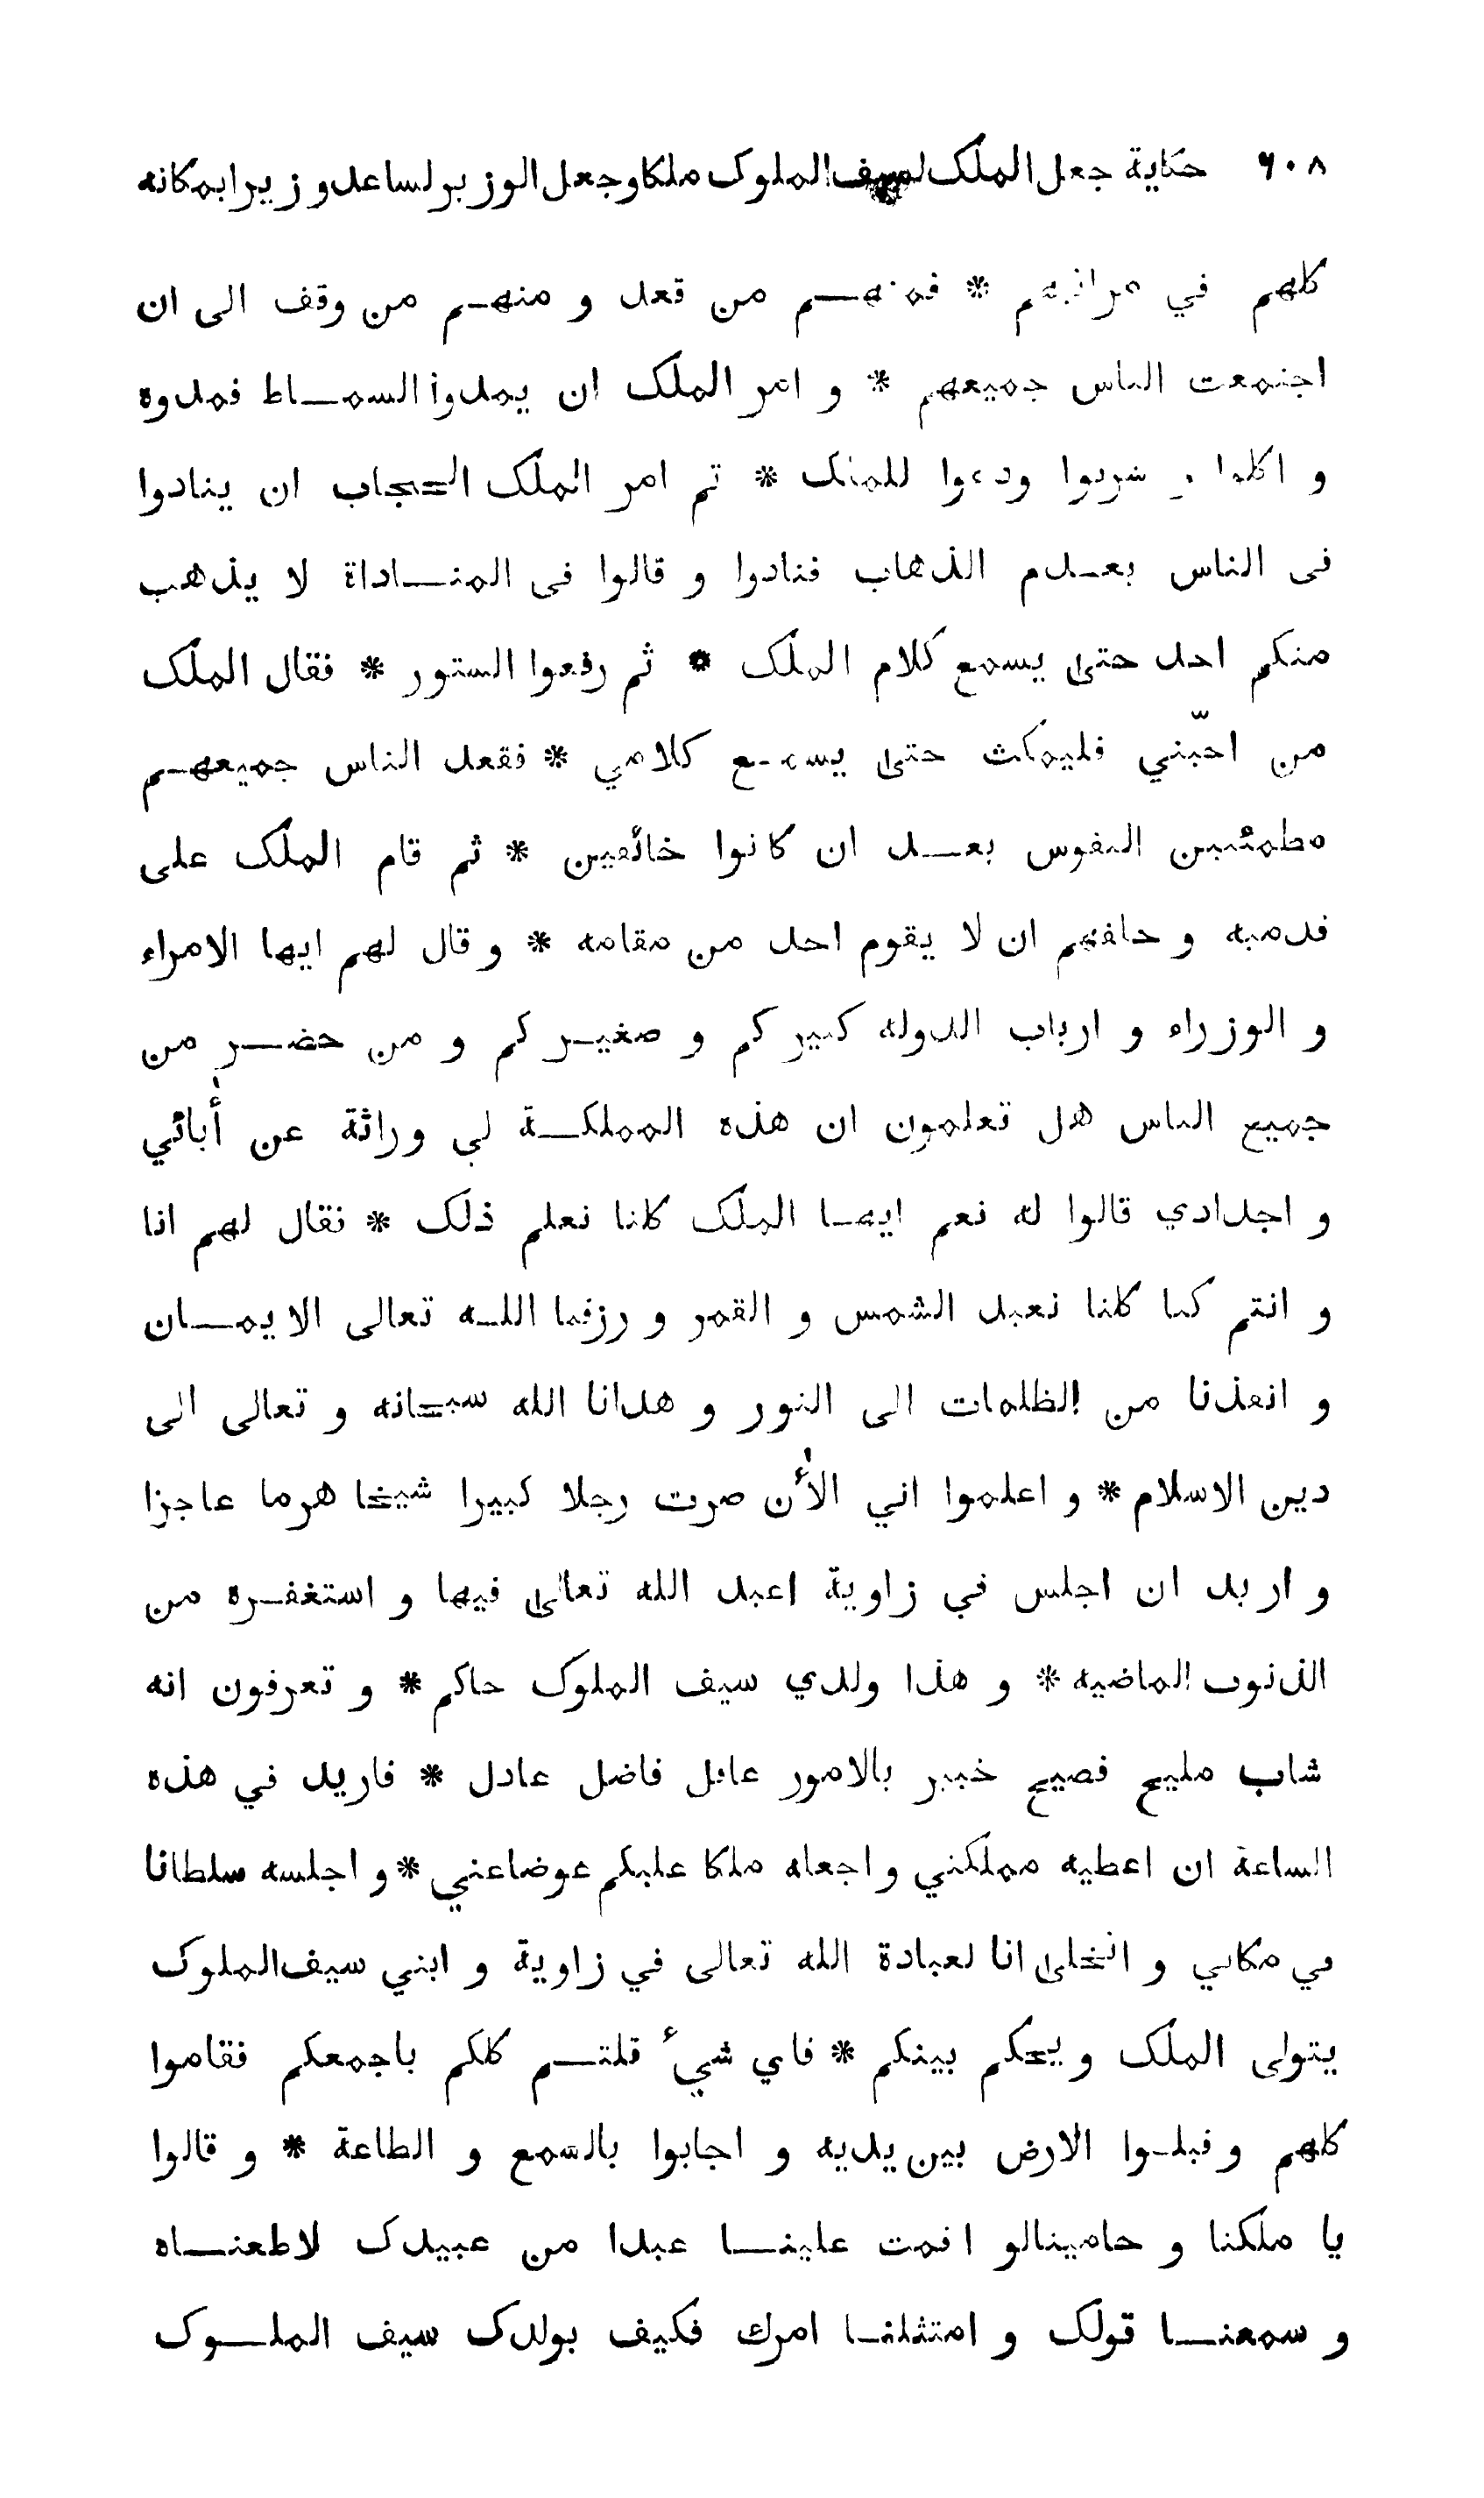 ٦٠٨ حكاية جعل الملك لسيف الملوك ملكا وجعل الوزير لساعد وزيرا بمكانه
كلهم في مراتبهم * فمنهم من قعد و منهم من وقف الى ان
اجتمعت الناس جميعهم * و امر الملك ان يمدوا السماط فمدوه
و اكلوا و شربوا ودعوا للملك * ثم امر الملك الحجاب ان ينادوا
فى الناس بعدم الذهاب فنادوا و قالوا فى المناداة لا يذهب
منكم احد حتى يسمع كلام الملك * ثم رفعوا الستور * فقال الملك
من احبّني فليمكث حتى يسمع كلامي * فقعد الناس جميعهم
مطمئنين النفوس بعد ان كانوا خائفين * ثم قام الملك على
قدميه و حلفهم ان لا يقوم احد من مقامه * و قال لهم ايها الامراء
و الوزراء و ارباب الدوله كبيركم و صغيركم و من حضر من
جميع الناس هل تعلمون ان هذه المملكة لي وراثة عن أبائي
و اجدادي قالوا له نعم ايها الملك كلنا نعلم ذلك * فقال لهم انا
و انتم كنا كلنا نعبد الشمس و القمر و رزقنا الله تعالى الايمان
و انقذنا من الظلمات الى النور و هدانا الله سبحانه و تعالى الى
دين الاسلام * و اعلموا اني الأن صرت رجلا كبيرا شيخا هرما عاجزا
و اريد ان اجلس في زاوية اعبد الله تعالى فيها و استغفره من
الذنوب الماضيه * و هذا ولدي سيف الملوك حاكم * و تعرفون انه
شاب مليح فصيح خبير بالامور عاقل فاضل عادل * فاريد في هذه
الساعة ان اعطيه مملكتي و اجعله ملكا عليكم عوضا عني * و اجلسه سلطانا
في مكاني و اتخلى انا لعبادة الله تعالى في زاوية و ابني سيف الملوك
يتولى الملك و يحكم بينكم * فاي شيء قلتم كلكم باجمعكم فقاموا
كلهم و قبلوا الارض بين يديه و اجابوا بالسمع و الطاعة * و قالوا
يا ملكنا و حامينا لو اقمت علينا عبدا من عبيدك لاطعناه
و سمعنا قولك و امتثلنا امرك فكيف بولدك سيف الملوك